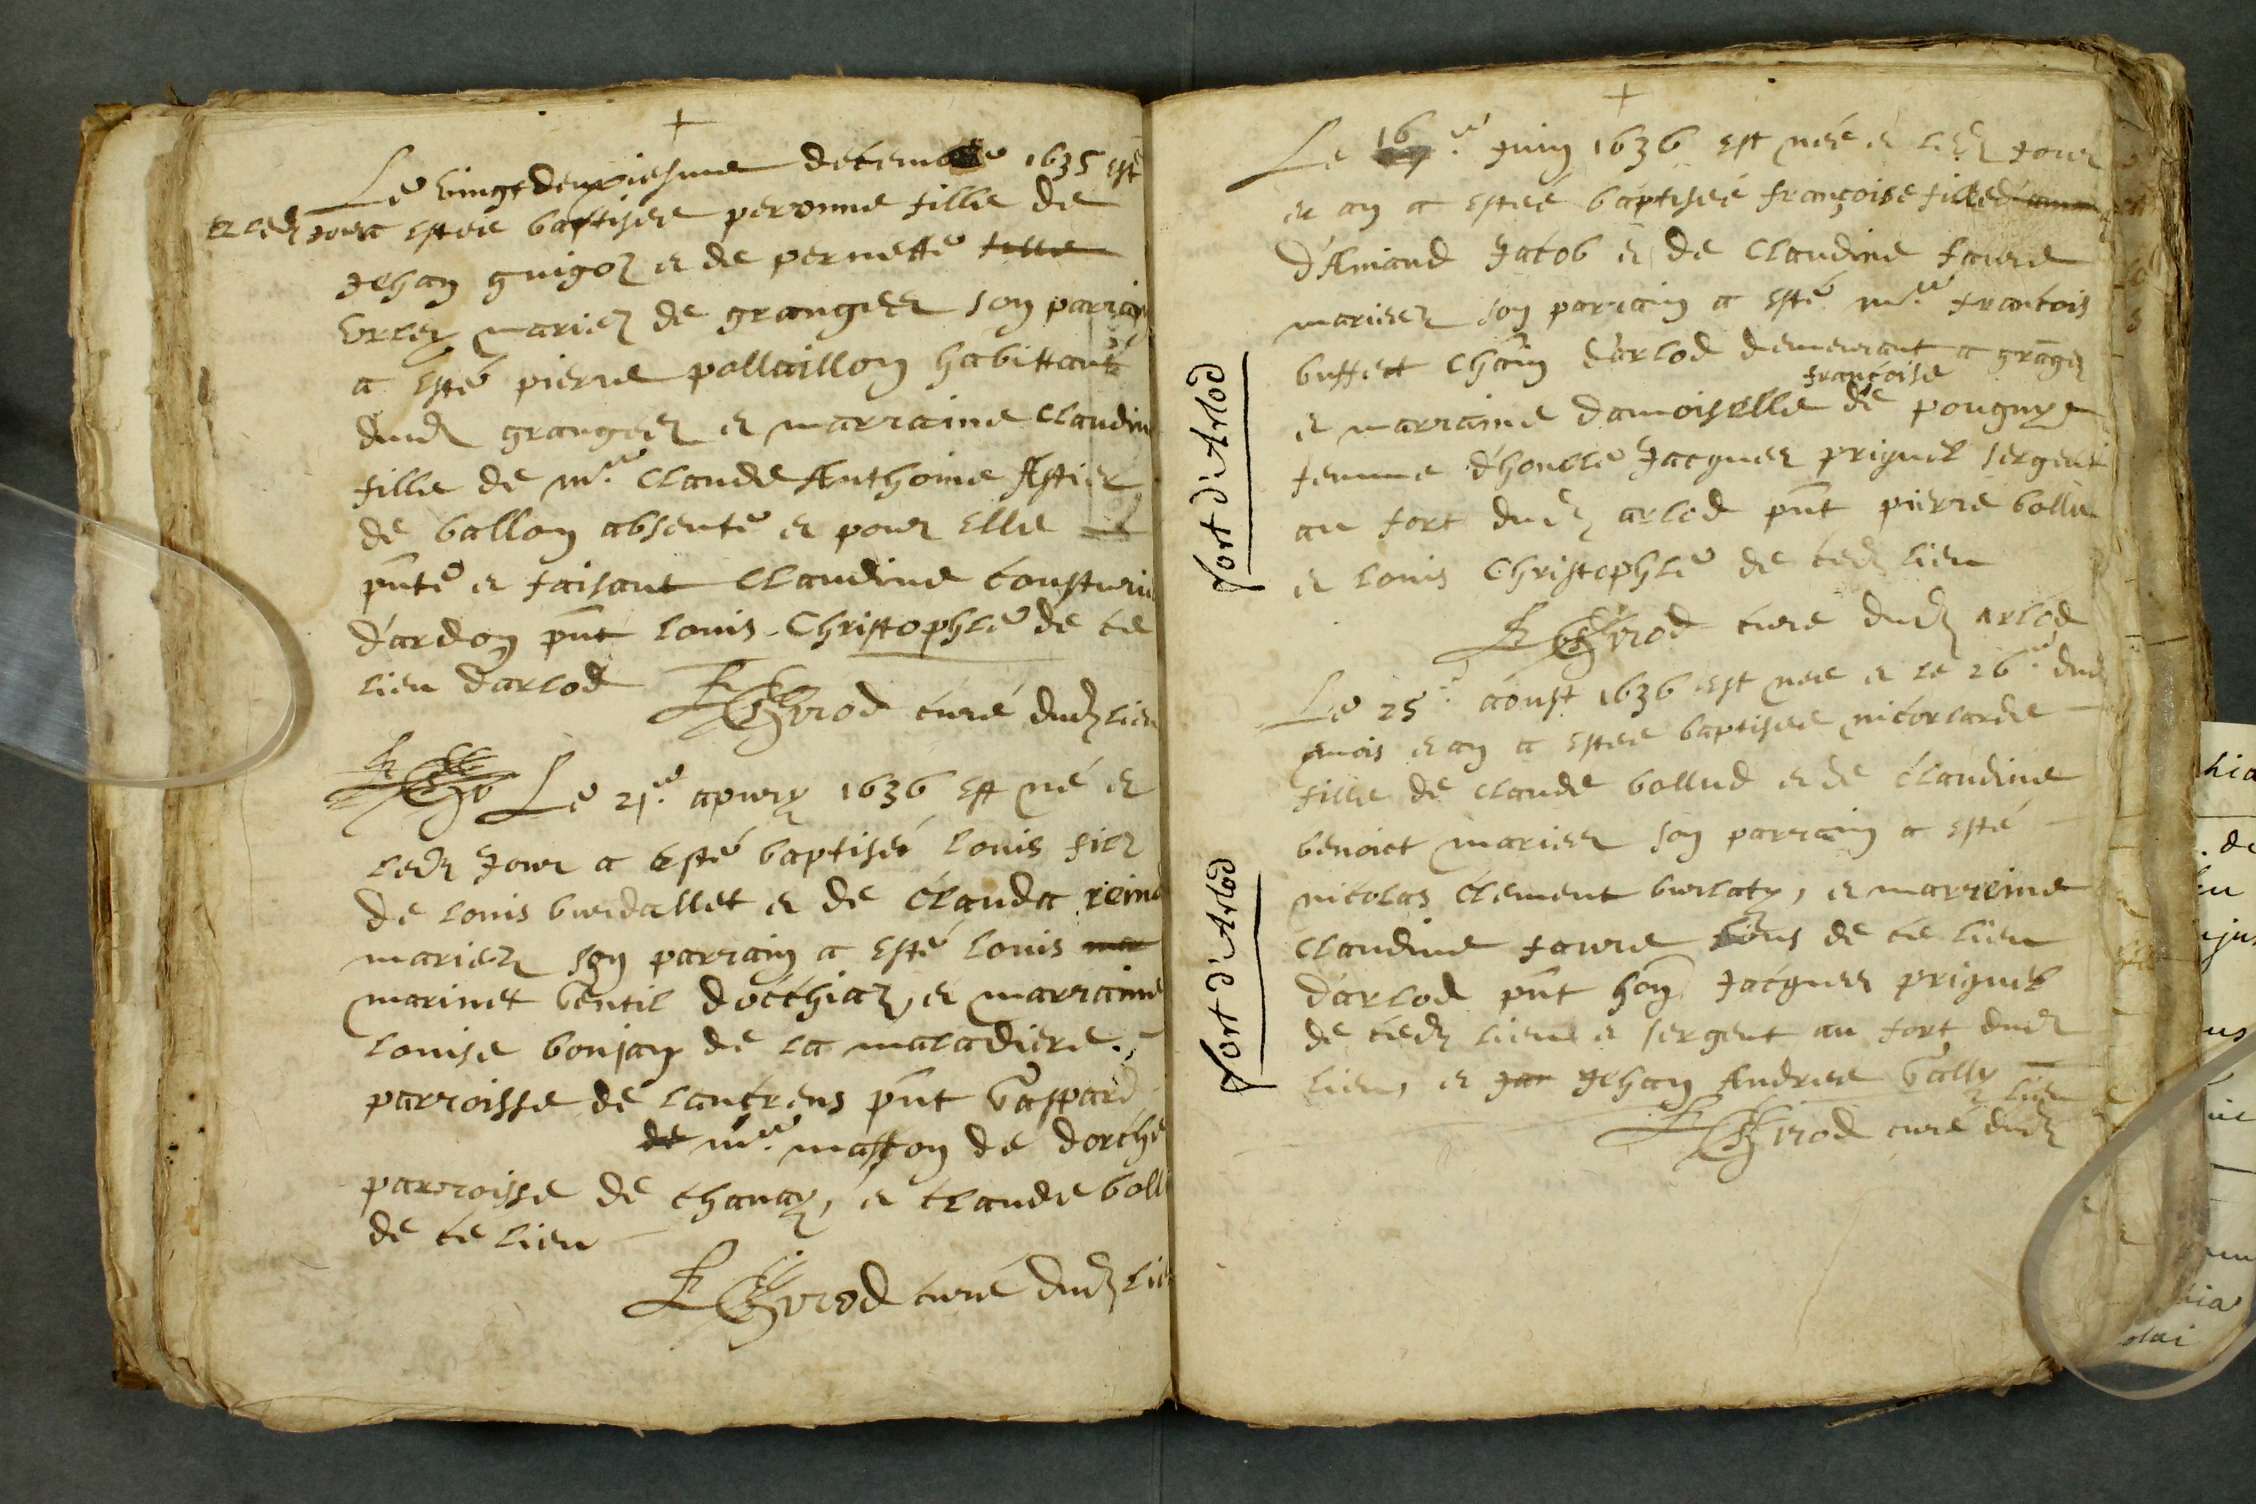 Le vingt deuxiesme decembre 1635 est
et led jour a estee baptisee peronne fille de
Jehan guigoz et de pernette fille
mariez de granges son parrain
a esté pierre pollaillon habittant
dud granges et marraine claudine
fille de m.re claude Anthoine Astier
de ballon absente et pour elle
pnte et faisant claudine cousturie
d'ardon pnt louis Christophle de ce
lieu d'arlod
curé dud lieu
Le 21.e 1636 est né et
led jour a esté baptisé louis filz
de louis burdallet et de clauda reine
mariez son parrain a esté louis mar
marinet gentil docthiaz, et marraine
louise bonjan de la maladiere
parroisse de lancrens pnt gaspard
de m.re masson de dorche
parroisse de chanay, et claude boll
de ce lieu
curé dud lieu
Le 16 .e juin 1636 est née et led jour
et an a esteé baptiseé françoise fille
d'Amand Jacob et de claudine faure
mariez son parrain a esté m.re francois
buffect d'arlod demeurant a granges
et marraine damoiselle françoise de pougny
femme d'honble Jacques priquet sergent
au fort dud arlod pnt pierre bollie
et louis Christophle de ced lieu
cure dud arlod
Le 25.e aoust 1636 est nee et le 26.e dud
mois et an a estee baptisee nicolarde
fille de claude bollud et de claudine
benoict mariez son parrain a esté
nicolas clement burlaty, et marreine
claudine faure tous de ce lieu
d'arlod pnt hon Jacques priquet
de ced lieu et sergent au fort dud
lieu, et Jehan Andree vally
lieu
curé dud
fort d'Arlod
fort d'Arlod